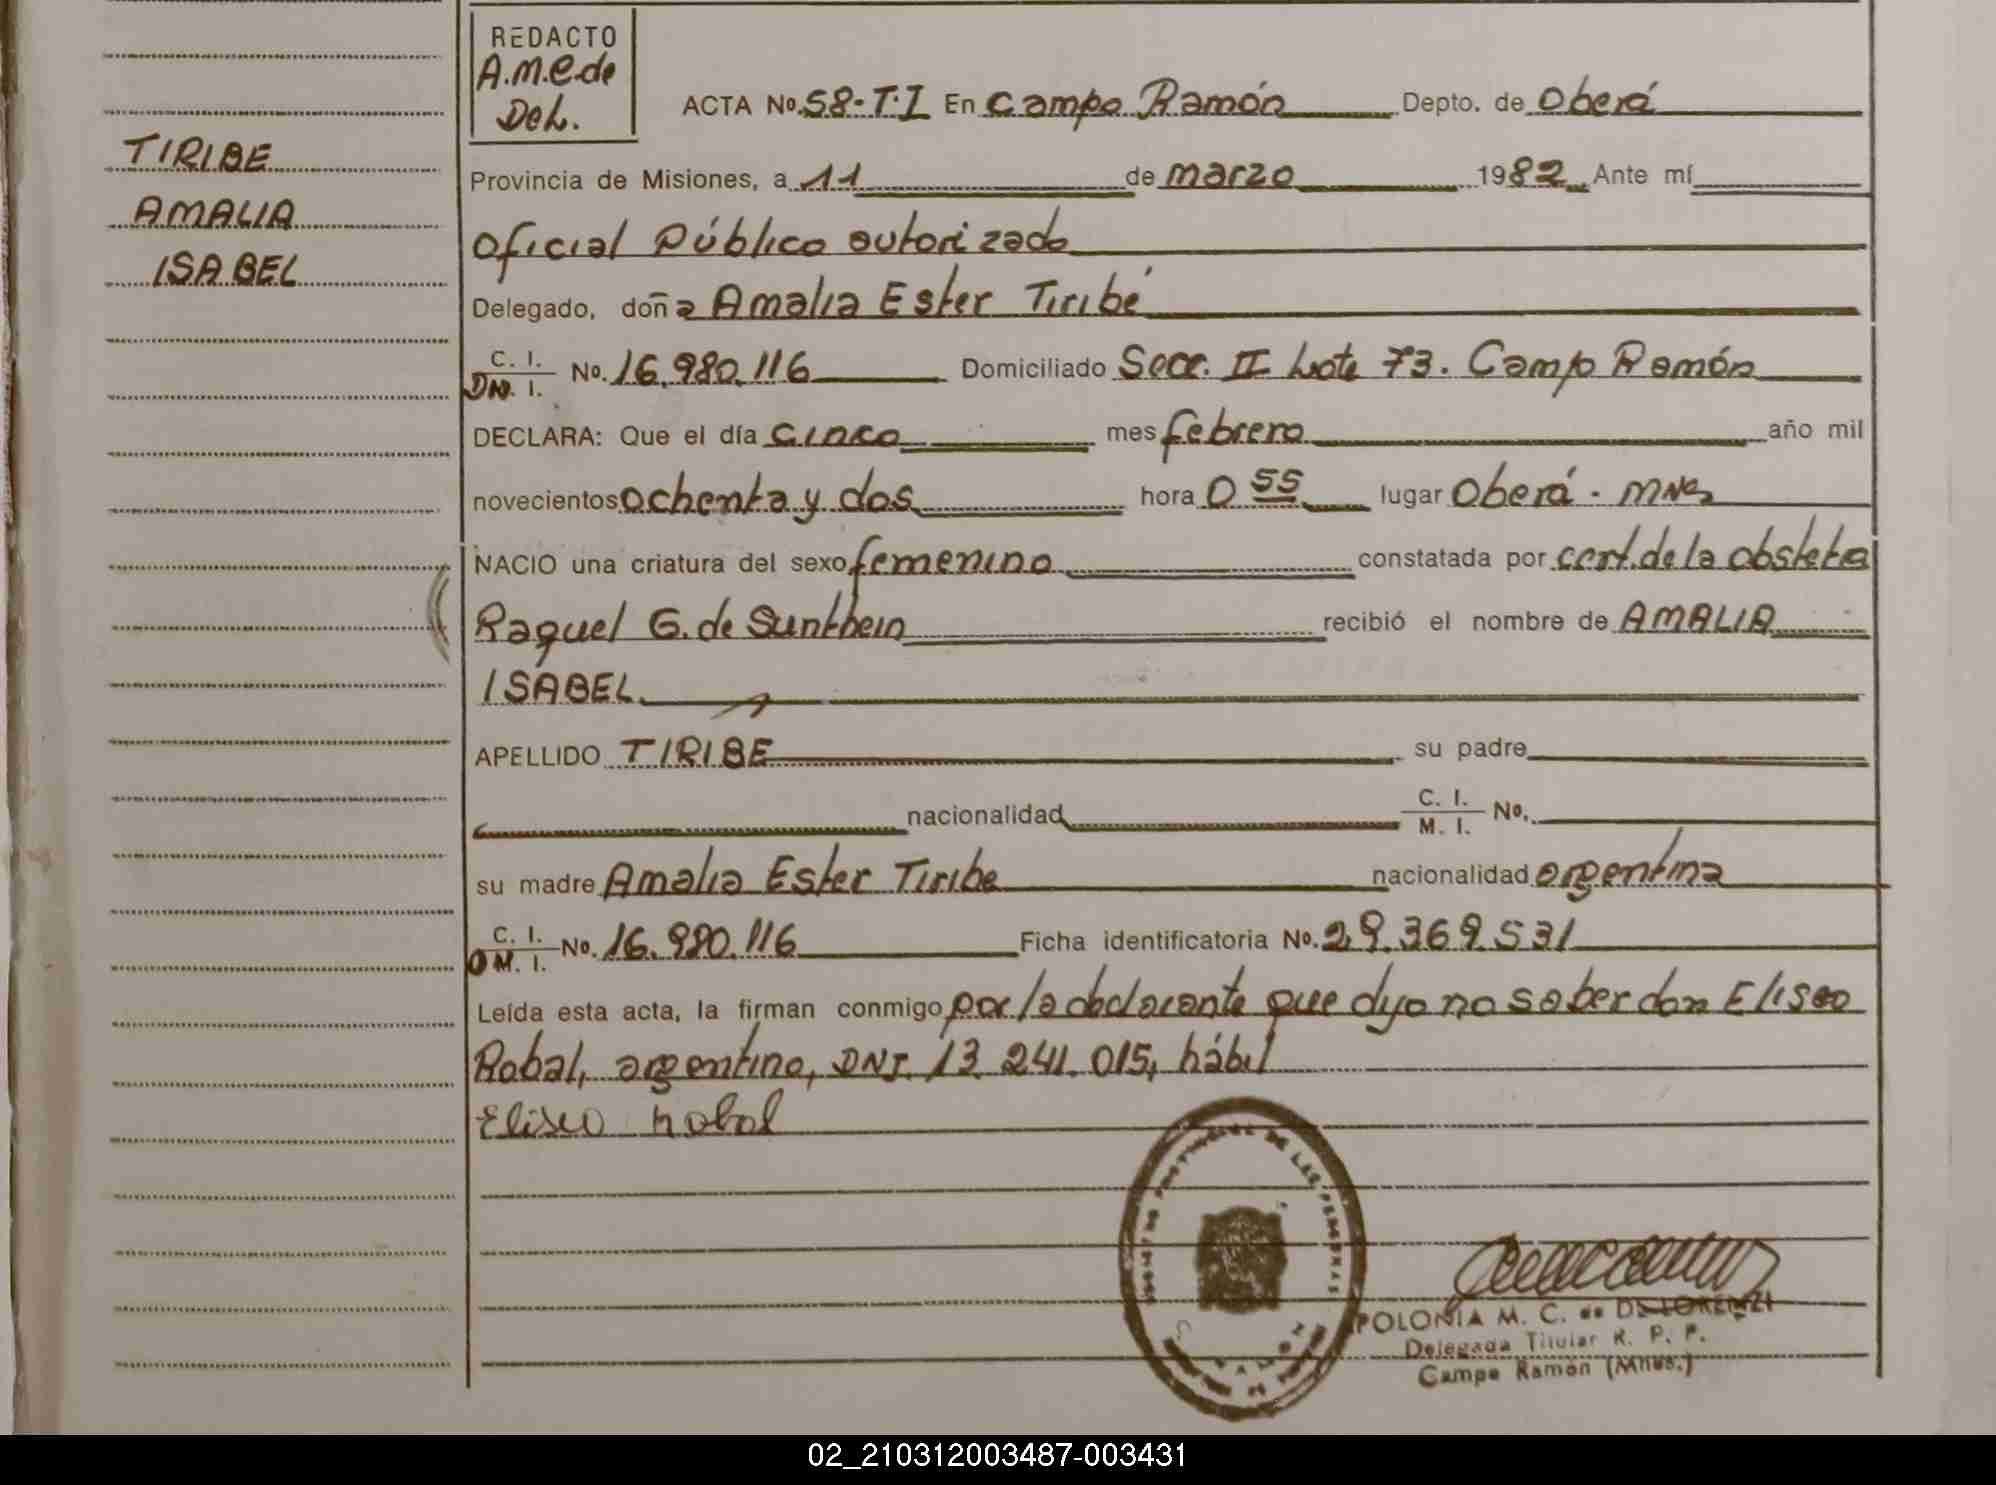 REDACTO
A.M.C.de
DeL.
TIRIBE
AMALIA
ISABEL
ACTA No. 58-T.I En Campo Ramón Depto. de Oberá
Provincia de Misiones, a 11 de marzo 1982 Ante mí
Oficial Público autorizado
Delegado, doña Amalia Ester Tiribé
C. I. DN. I. No. 16.980.116 Domiciliado Secc. II Lote 73. Campo Ramón
DECLARA: Que el día cinco mes febrero año mil
novecientos ochenta y dos hora 0 55 lugar Oberá - Mnes
NACIO una criatura del sexo femenino constatada por cert. de la obstetra
Raquel G. de Sunthein recibió el nombre de AMALIA
ISABEL
APELLIDO TIRIBE su padre
nacionalidad C. I. M. I. No.
su madre Amalia Ester Tiribe nacionalidad argentina
C. I. M. I. No. 16.980.116 Ficha identificatoria No. 29.369.531
Leída esta acta, la firman conmigo por la declarante que dijo no saber don Eliseo
Robal, argentino, DNI. 13.241.015, hábil
Eliseo Robal
DE LAS PERSONAS
POLONIA M. C. de DE LORENZI
Delegada Titular R. P. P.
Campo Ramón (Mnes.)
02_210312003487-003431